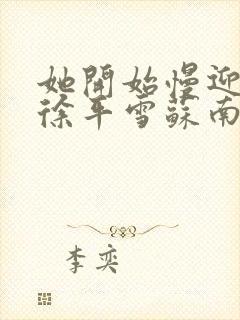 她開始慢迎
徐平雪蘇南
李奕